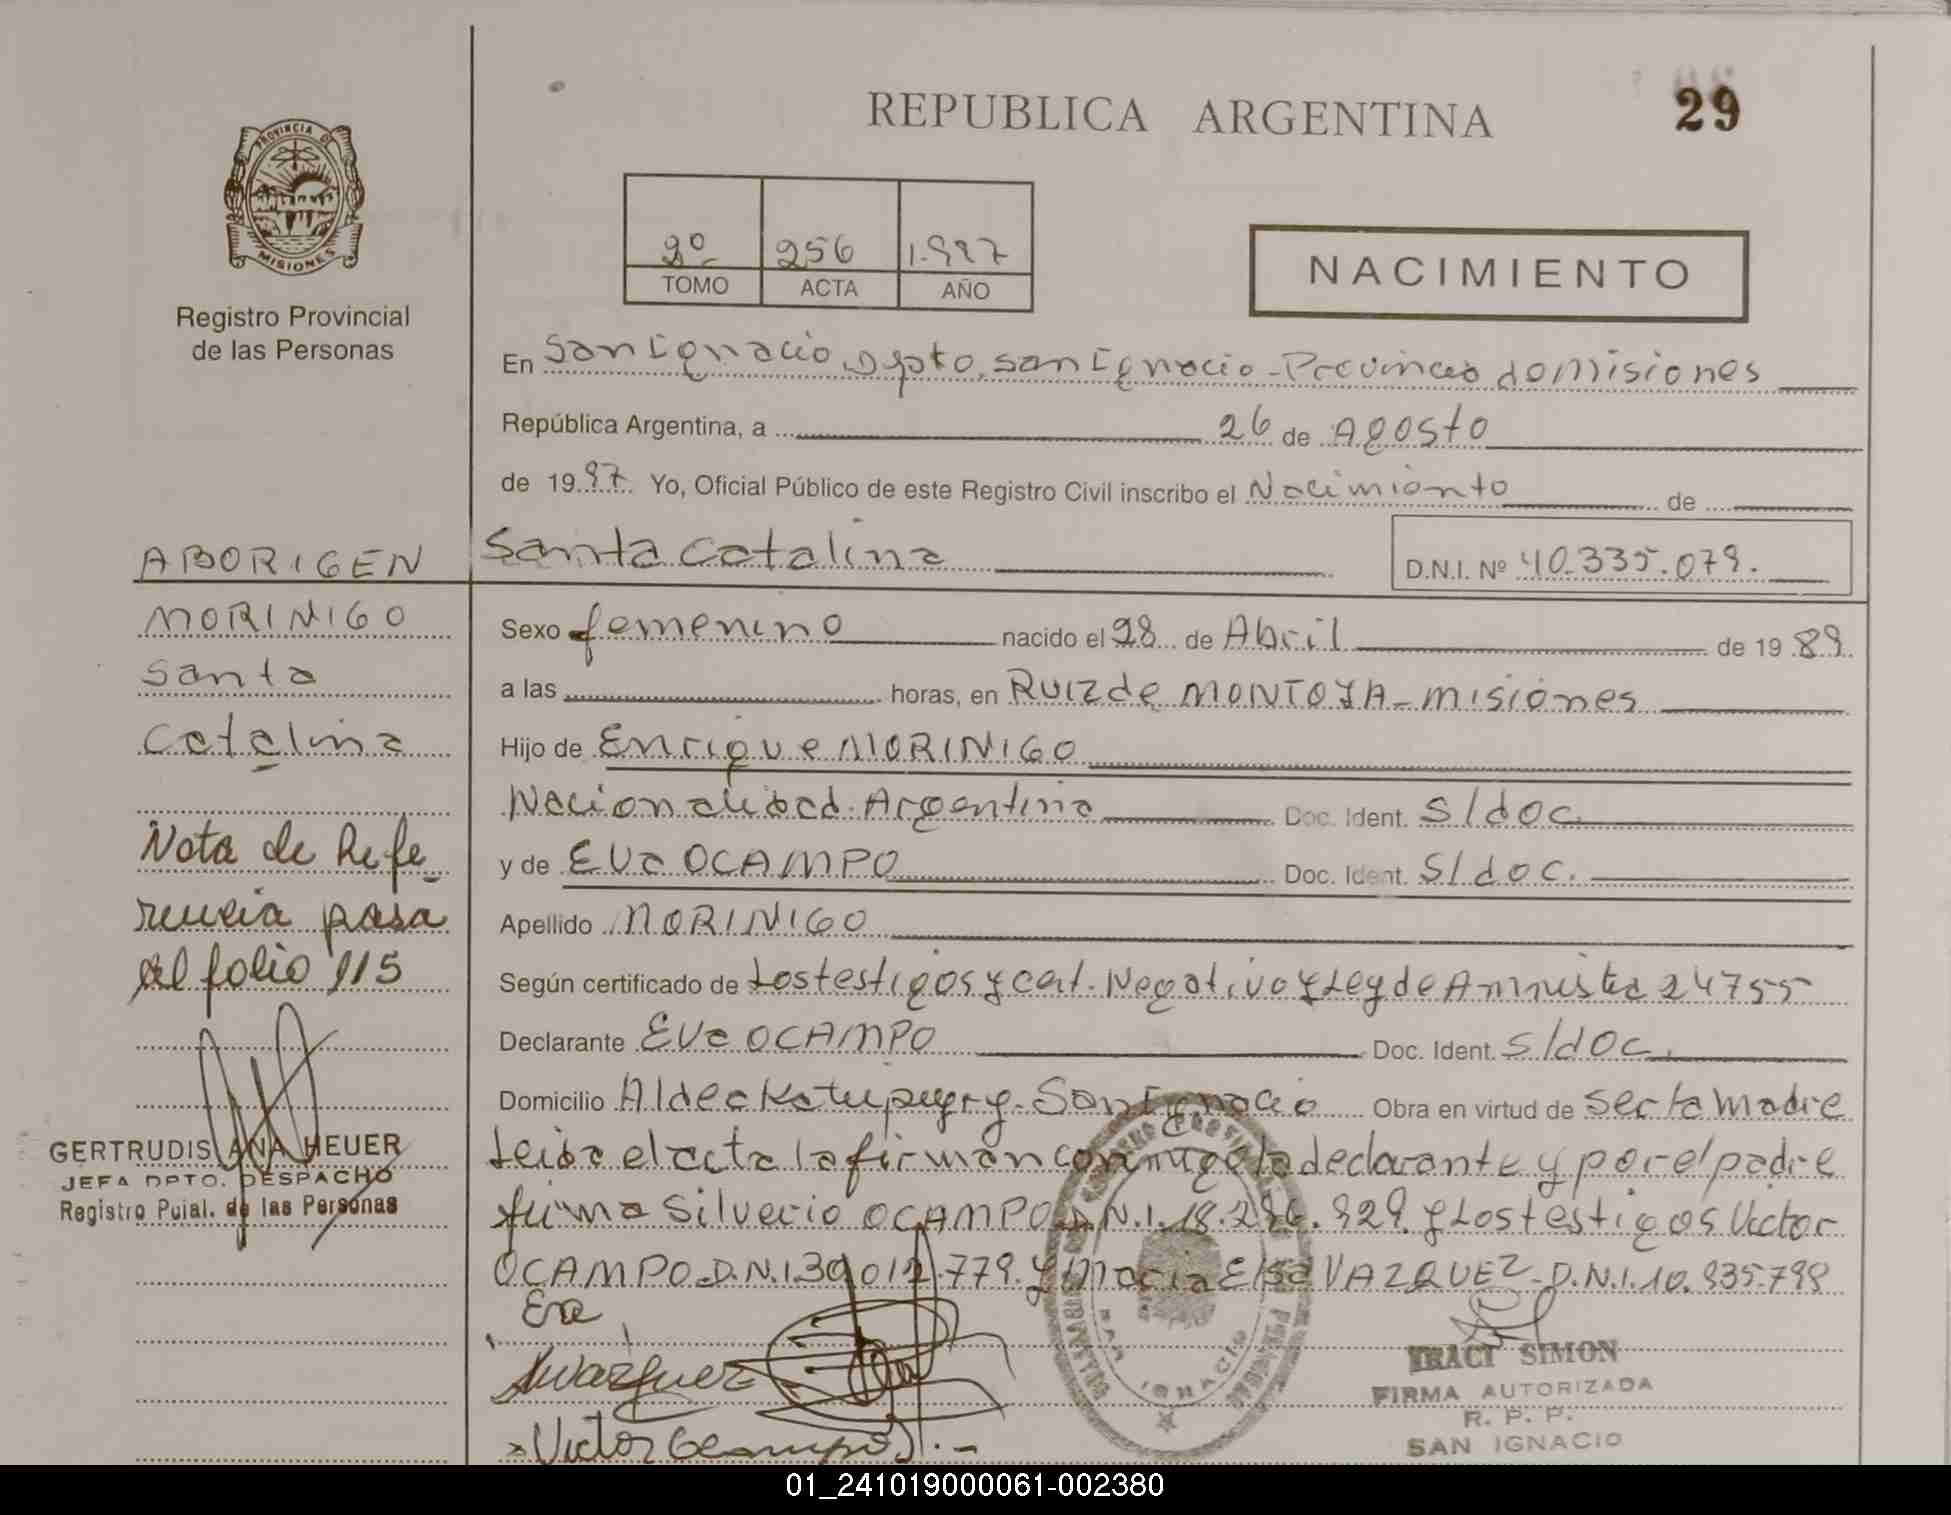 REPUBLICA ARGENTINA
29
PROVINCIA DE
MISIONES
Registro Provincial
de las Personas
2º 256 1.997
TOMO ACTA AÑO
NACIMIENTO
En San Ignacio Dpto. San Ignacio - Provincia de Misiones
República Argentina, a 26 de Agosto
de 1997. Yo, Oficial Público de este Registro Civil inscribo el Nacimiento de
Santa Catalina
D.N.I. Nº 40.335.079.
ABORIGEN
MORINIGO
Santa
Catalina
Nota de Refe
rencia pasa
al folio 115
GERTRUDIS ANA HEUER
JEFA DPTO. DESPACHO
Registro Pcial. de las Personas
Sexo femenino nacido el 28 de Abril de 1989.
a las horas, en RUIZ de MONTOYA - Misiones
Hijo de Enrique MORINIGO
Nacionalidad Argentina Doc. Ident. S/doc.
y de Eva OCAMPO Doc. Ident. S/doc.
Apellido MORINIGO
Según certificado de Los testigos y cert. Negativo y Ley de Amnistia 24755
Declarante Eva OCAMPO Doc. Ident. S/doc.
Domicilio Aldea Katupyry - San Ignacio Obra en virtud de ser la Madre
Leida el acta la firman conmigo la declarante y por el padre
firma Silverio OCAMPO D.N.I. 18.296.929. y Los testigos Victor
OCAMPO D.N.I. 30.012.779. y Maria Elsa VAZQUEZ - D.N.I. 10.935.799
Eva
Vazquez
Victor Ocampo
SAN IGNACIO
IRACI SIMON
FIRMA AUTORIZADA
R. P. P.
SAN IGNACIO
01_241019000061-002380